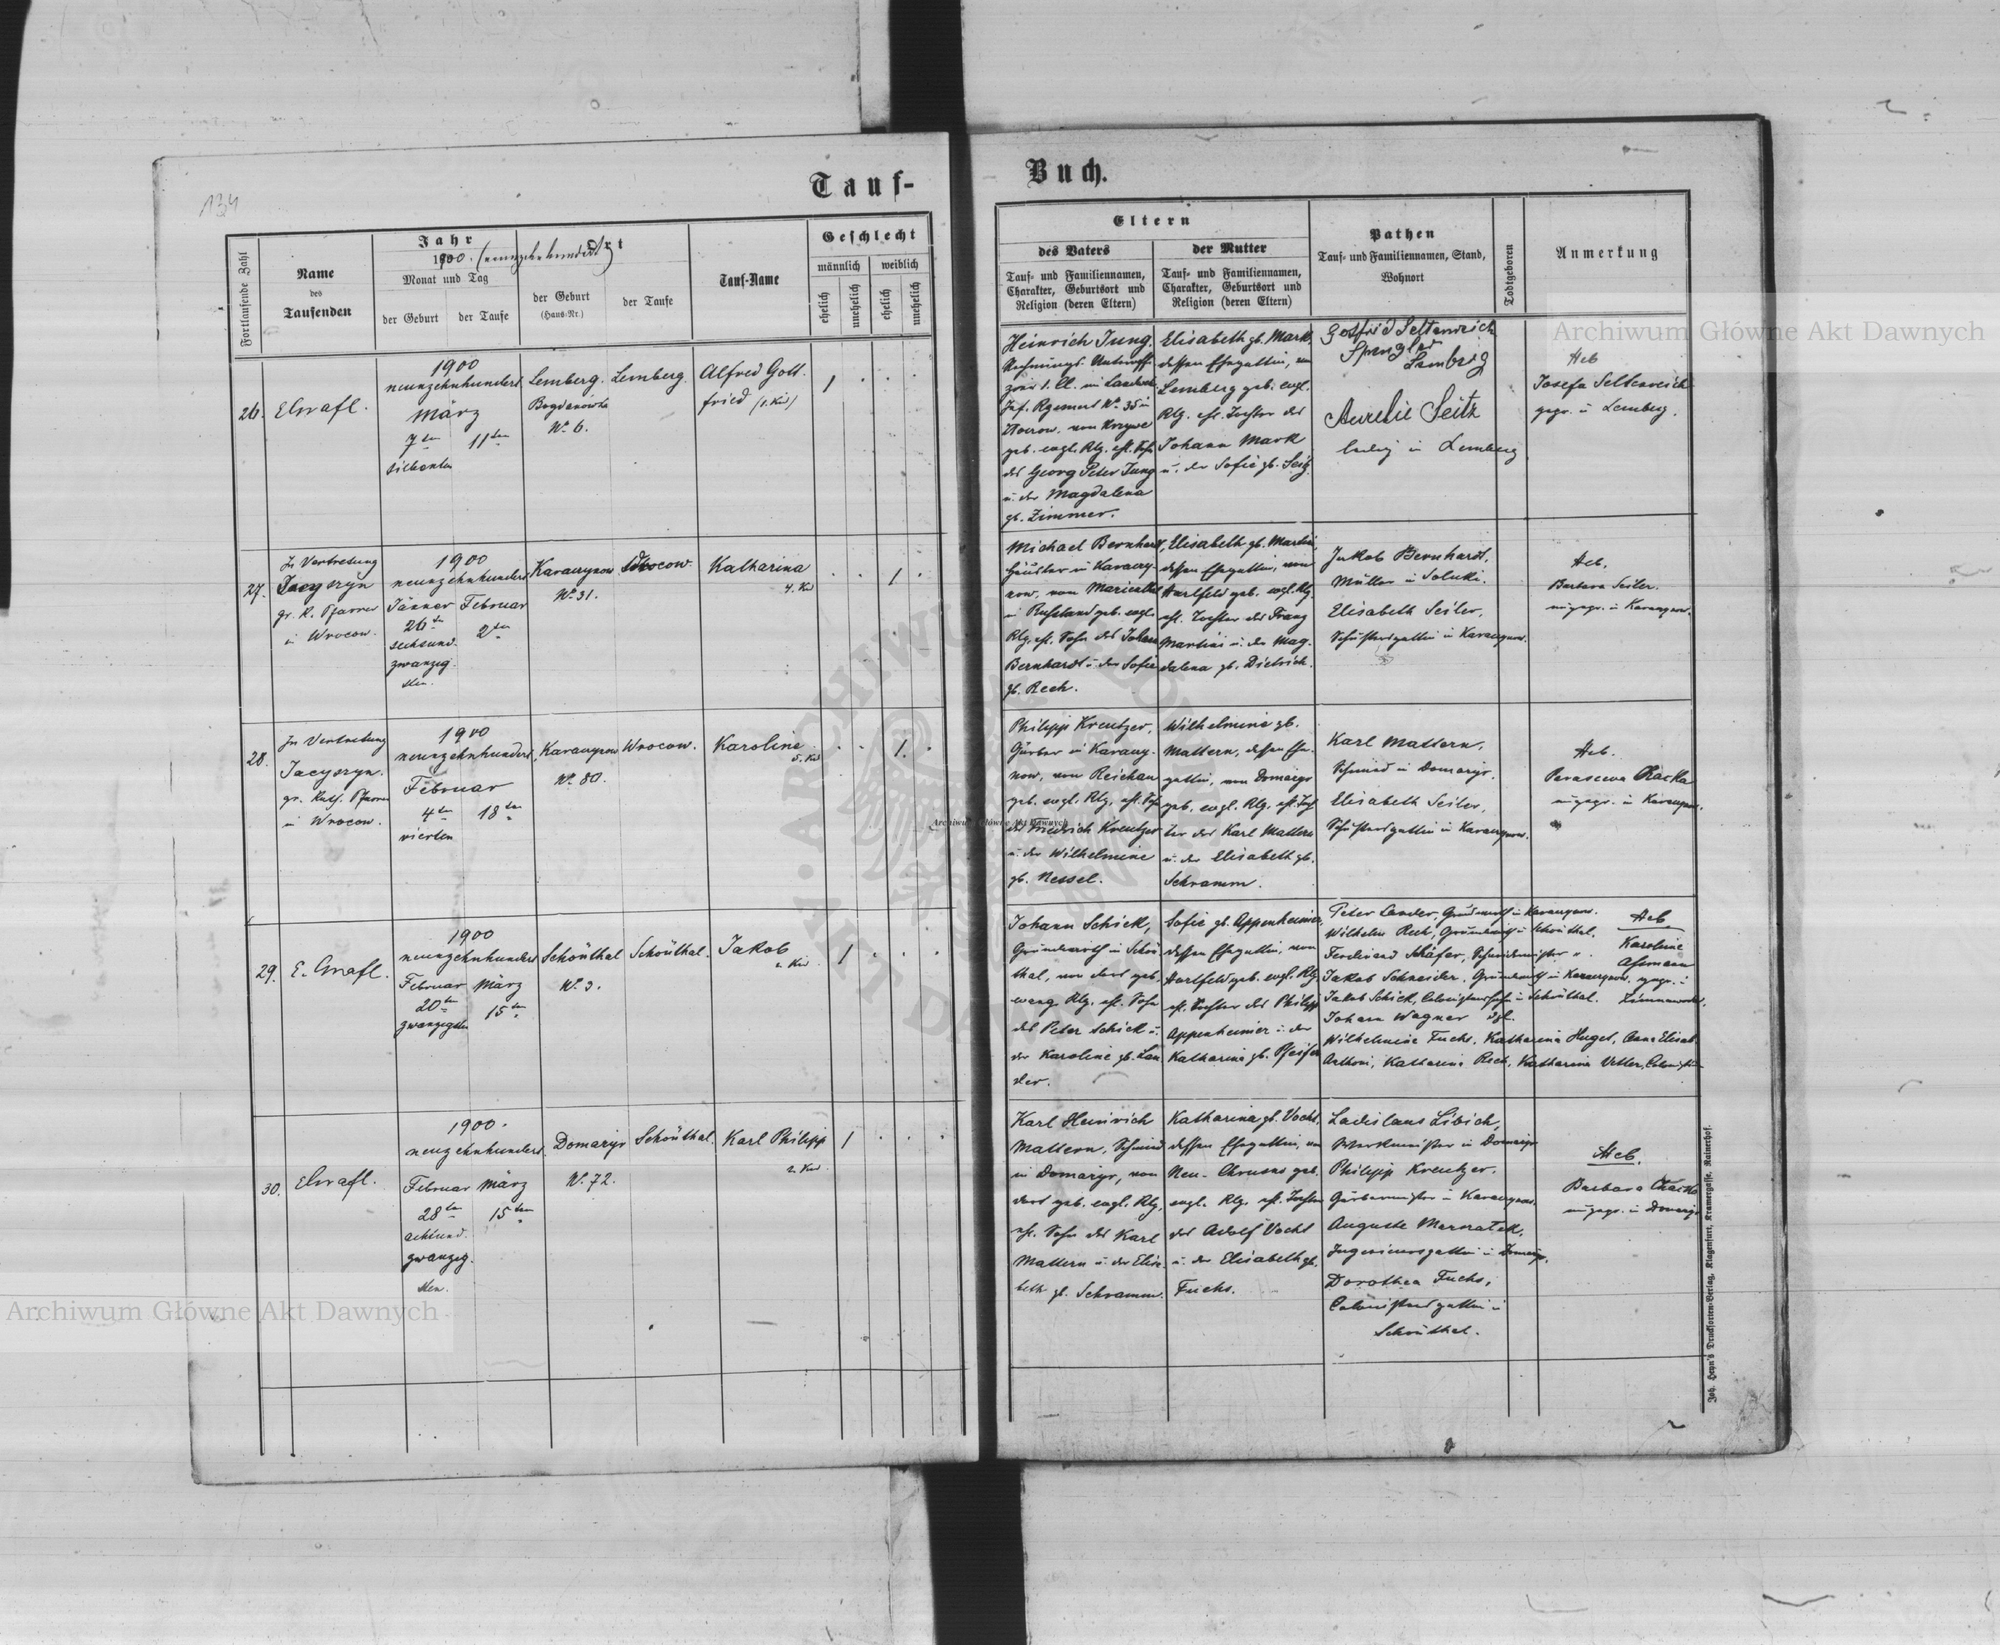 134
Tauf-
Fortlaufende Zahl
Name
des
Taufenden
Jahr
1900. (neunzehnhundert)
Monat und Tag
der Geburt
der Taufe
Ort
der Geburt
(Haus-Nr.)
der Taufe
Tauf-Name
Geschlecht
männlich
weiblich
ehelich
unehelich
ehelich
unehelich
26.
1900
neunzehnhundert
März
7ten
11ten
siebenten
Lemberg.
Bogdanówka
No 6.
Lemberg.
Alfred Gott-
fried (1. Kind)
1
27.
In Vertretung
Jacyszyn
gr. k. Pfarrer
in Wrocow.
1900
neunzehnhundert
Jänner
Februar
26te
2ten
sechsund-
zwanzig-
sten.
No 31.
Wrocow.
Katharina
4. Kind
1
28.
In Vertretung
Jacyszyn.
gr. kath. Pfarrer
in Wrocow.
1900
neunzehnhundert
Februar
4te
18ten
vierten
No 80.
Wrocow.
Karoline
5. Kind
1.
29.
1900
neunzehnhundert
Februar
März
20te
15ten
zwanzigsten
Schönthal
No 3.
Schönthal.
Jakob
2. Kind
1
30.
1900.
neunzehnhundert.
Februar
März
28ten
15ten
achtund-
zwanzig-
sten.
Domazyr
No 72.
Schönthal.
Karl Philipp
2. Kind.
1
Buch.
Eltern
des Vaters
Tauf- und Familiennamen,
Charakter, Geburtsort und
Religion (deren Eltern)
der Mutter
Tauf- und Familiennamen,
Charakter, Geburtsort und
Religion (deren Eltern)
Pathen
Tauf- und Familiennamen, Stand,
Wohnort
Todtgeboren
Anmerkung
Heinrich Jung,
Rechnungs-Unteroffi-
zier 1. Cl. im Landwehr
Inf. Regiment No 35 in
geb. evgl. Rlg. ehl. Sohn
des Georg Peter Jung
u. der Magdalena
gb. Zimmer.
Elisabeth gb. Mark,
dessen Ehegattin, von
Lemberg geb. evgl.
Rlg. ehl. Tochter des
Johann Mark
u. der Sofie gb.
Gottfried Seltenreich
Spengler
Lemberg
Aurelie Seitz
ledig in Lemberg
Heb
Josefa Seltenreich
gepr. in Lemberg.
Michael Bernhardt,
in Russland geb. evgl.
Rlg. ehl. Sohn des Johann
Bernhardt u. der Sofie
gb. Rech.
Elisabeth gb. Martini,
dessen Ehegattin, von
Hartfeld geb. evgl. Rlg.
ehl. Tochter des Franz
Martini u. der Mag-
dalena gb. Dietrich.
Jakob Bernhardt,
Müller in Soluki.
Elisabeth Seiler,
Heb.
Barbara Seiler.
Philipp Kreutzer,
Gärber in
now, von Reichau
geb. evgl. Rlg. ehl. Sohn
des Friedrich Kreutzer
u. der Wilhelmine
gb. Nessel.
Wilhelmine gb.
Mattern, dessen Ehe-
gattin, von Domazyr
geb. evgl. Rlg. ehl. Toch-
ter des Karl Mattern
u. der Elisabeth gb.
Schramm.
Karl Mattern,
Schmied in Domazyr.
Elisabeth Seiler,
Heb.
Johann Schick,
Grundwirth in Schön-
thal, von dort geb.
evang. Rlg. ehl. Sohn
des Peter Schick u.
der Karoline gb. Lan-
der.
Sofie gb. Oppenheimer,
dessen Ehegattin, von
Hartfeld geb. evgl. Rlg.
ehl. Tochter des Philipp
Oppenheimer u. der
Katharina gb. Pfeifer
Peter Lander, Grundwirth in
Wilhelm Rech, Grundwirth in Schönthal.
Ferdinand Schäfer, Schmiedmeister
Jakob Schneider, Grundwirth in
Jakob Schick, Colonistensohn in Schönthal.
Johann Wagner dgl.
Wilhelmine Fuchs, Katharina Huget, Anna Elisab.
Anthoni, Katharina Rech, Katharina Vetter,
Heb
Karoline
Karl Heinrich
Mattern, Schmied
in Domazyr, von
dort geb. evgl. Rlg.
ehl. Sohn des Karl
Mattern u. der Elisa-
beth gb. Schramm.
Katharina gb. Vocht,
dessen Ehegattin, von
Neu-Chrusno geb.
evgl. Rlg. ehl. Tochter
des Adolf Vocht
u. der Elisabeth gb.
Fuchs.
Ladislaus Libich,
Werkmeister in Domazyr
Philipp Kreutzer,
Gärbermeister in
Auguste
Ingenieursgattin in Domazyr.
Dorothea Fuchs,
Colonistengattin in
Schönthal.
Heb.
Barbara
Joh. Heyn's Drucksorten-Verlag, Klagenfurt, Kramergasse, Rainerhof.
Archiwum Główne Akt Dawnych
Archiwum Główne Akt Dawnych
Archiwum Główne Akt Dawnych